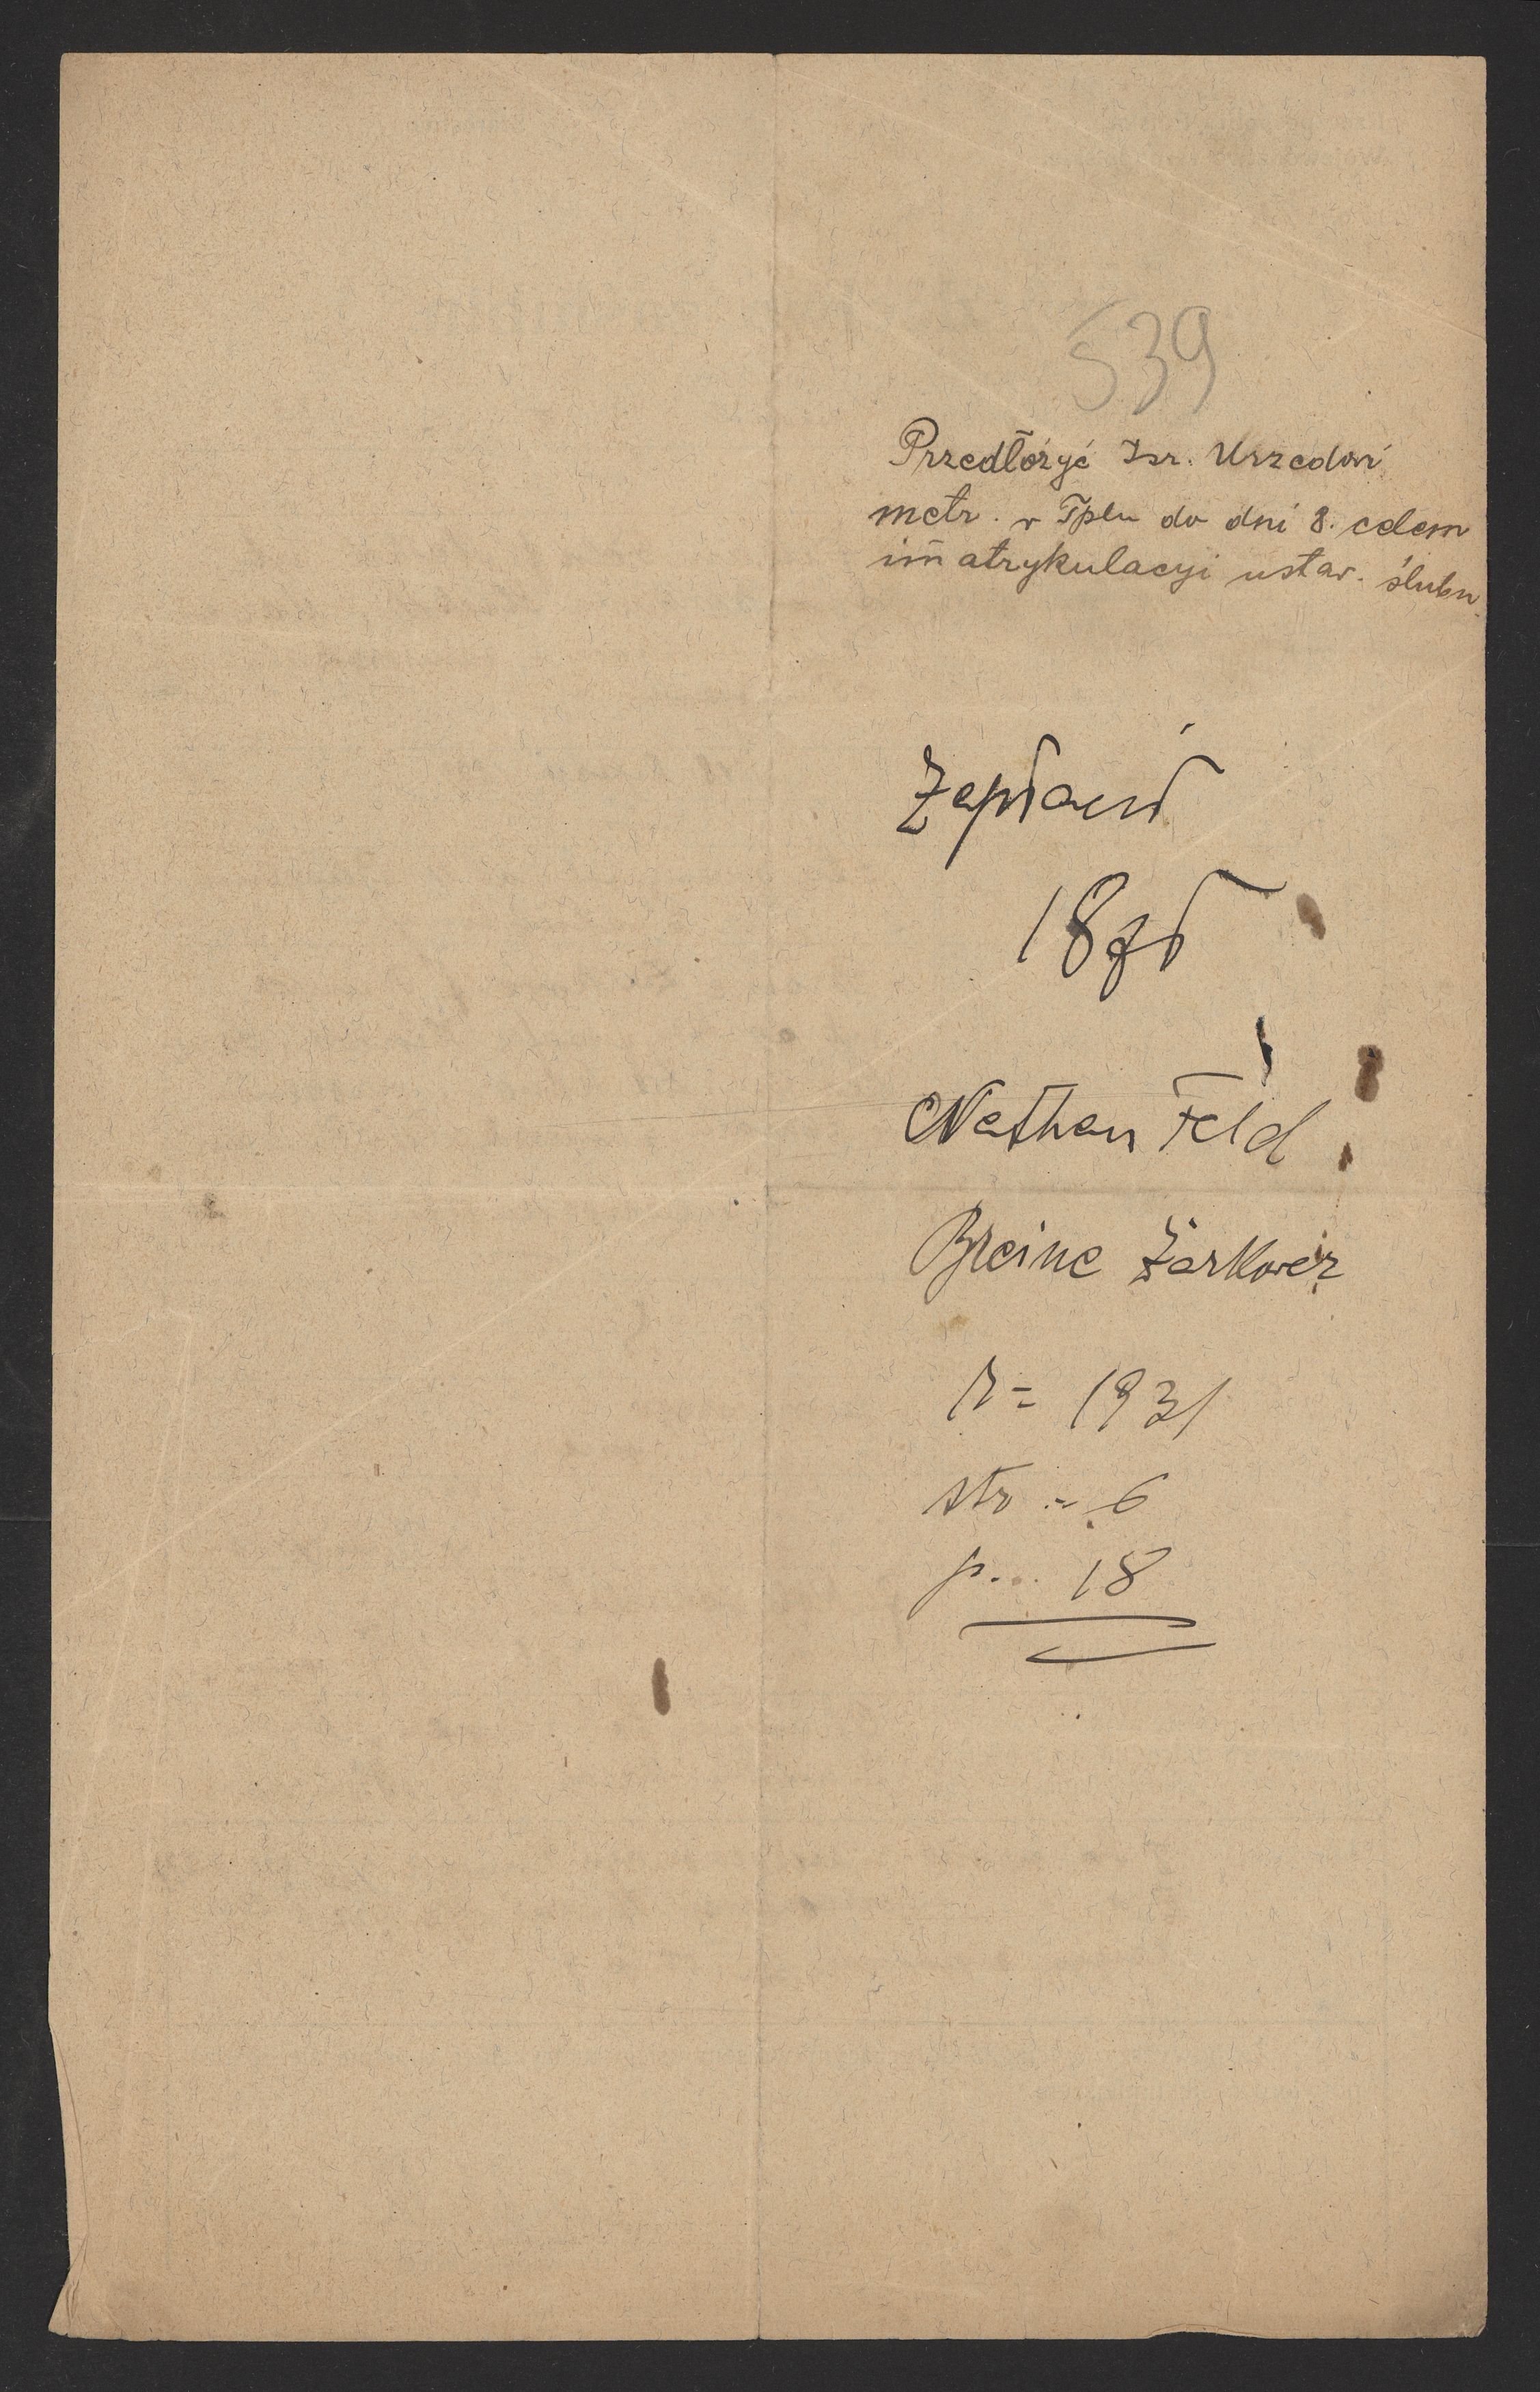 539
Przedłożyć Izr. Urzedowi
metr. w Tplu do dni 8. celem
im̄atrykulacyi ustaw. ślubu.
Zapłacić
18 zł
Nathan Feld
Breine Żarkower
r = 1931
str = 6
p... 18